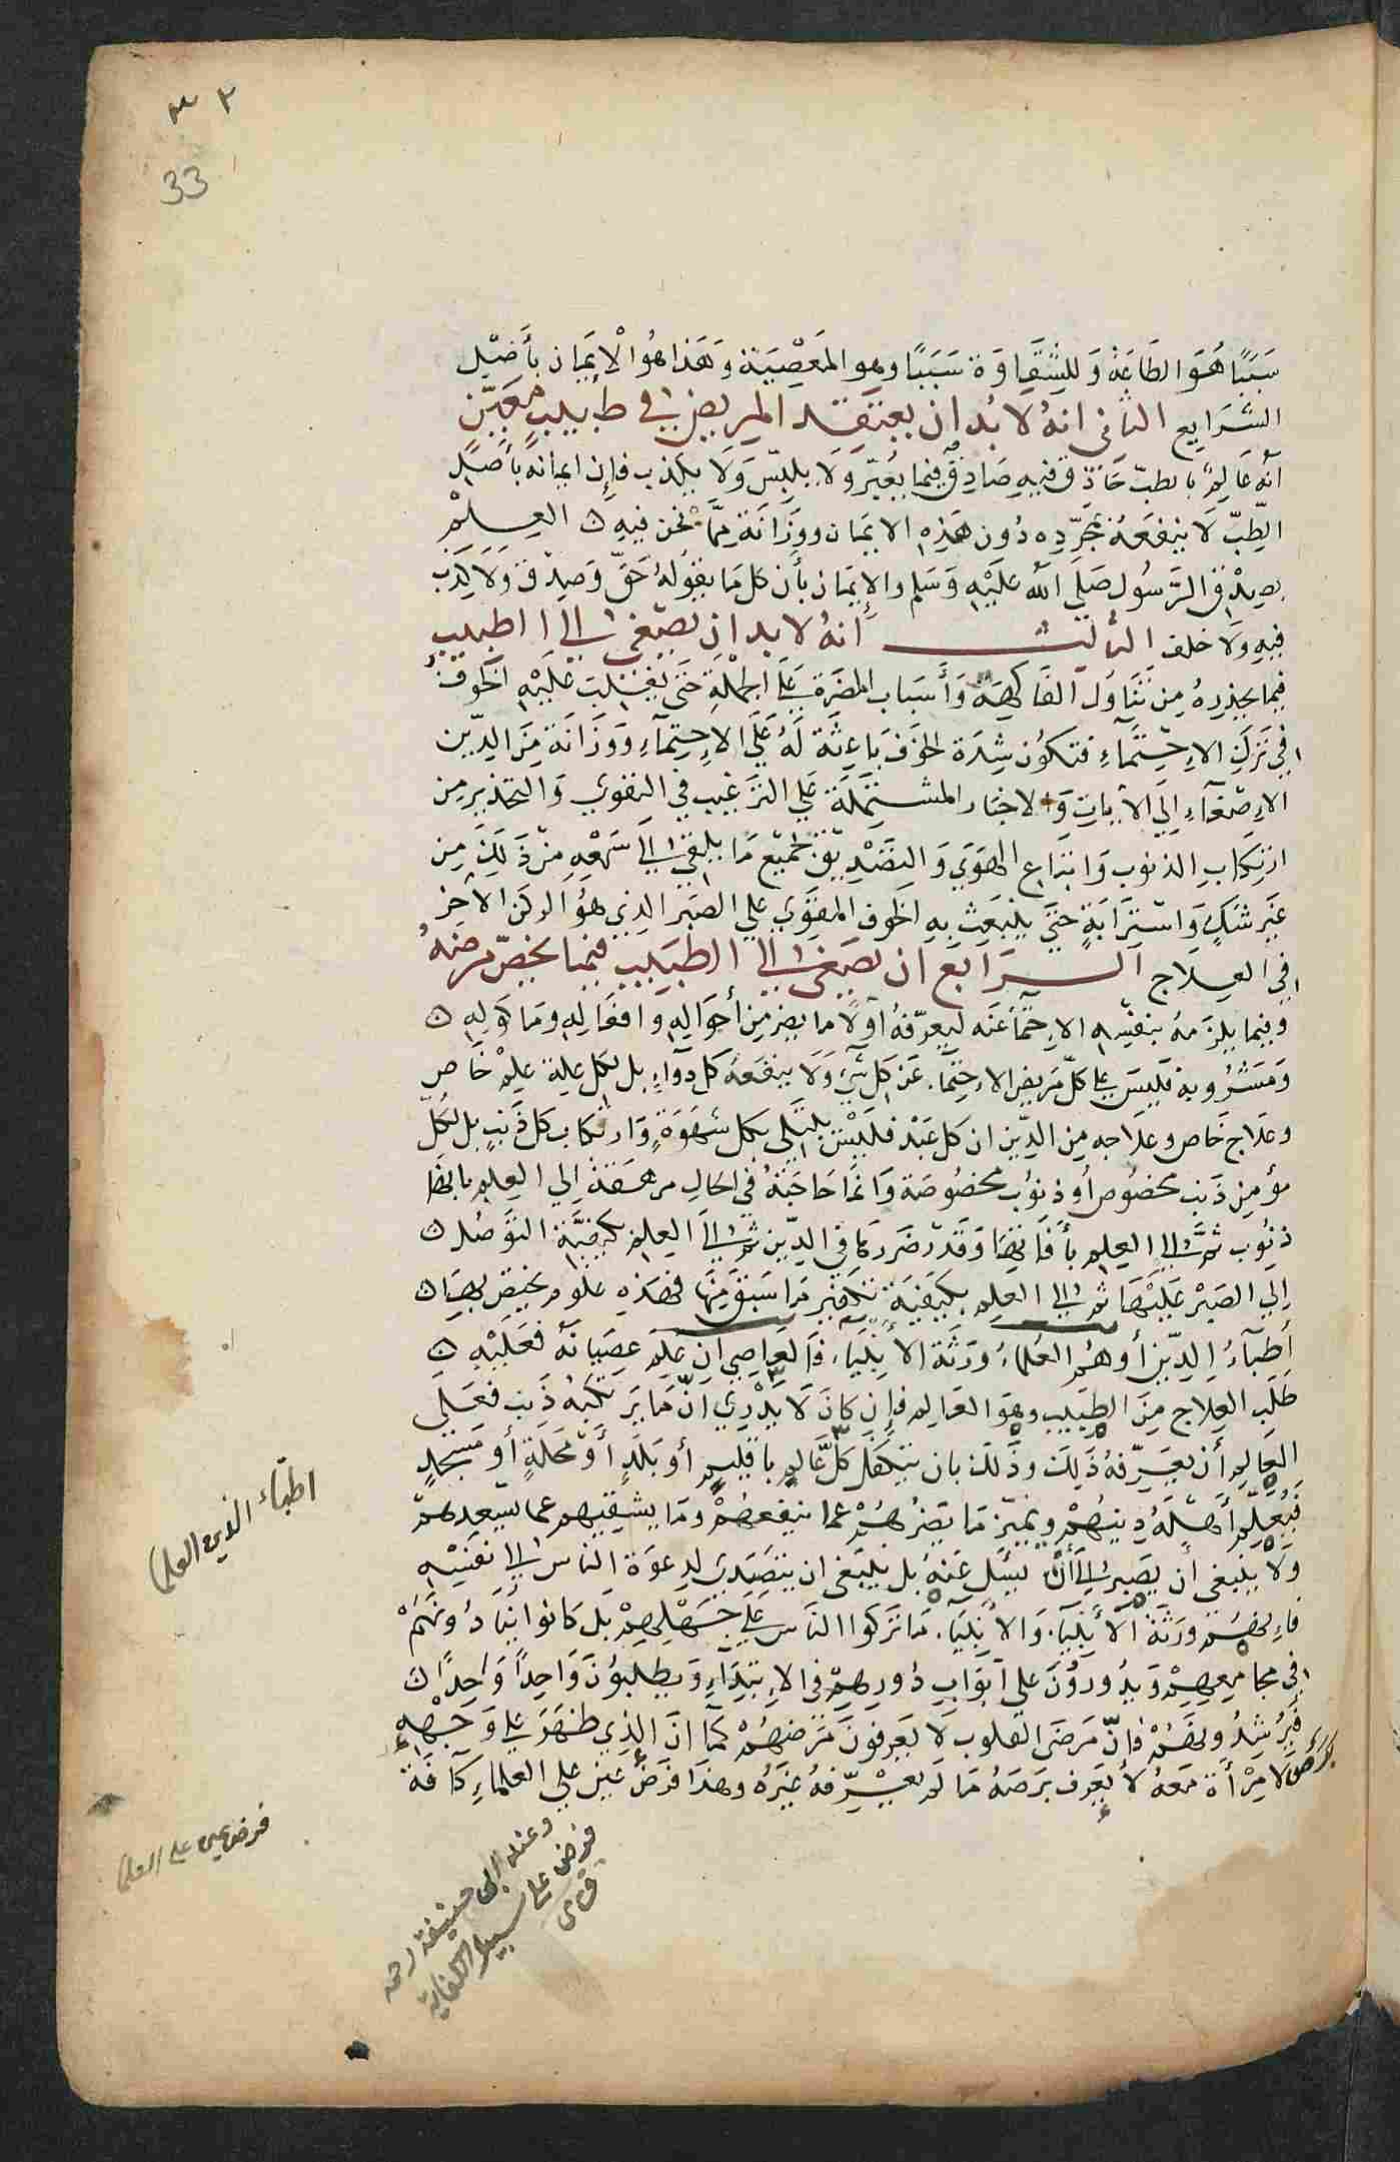 ٣٢
33
سَبَبًا هُوَ الطَاعَة وَللشَقَاوَة سَبَبًا وهو المَعْصِيَة وَهَذا هُوَ الْإيمَان بأَصْل
الشَرَايع الثانى انهُ لا بُد ان يعتقد المريض في طبيب مُعَيّن
أنّه عَالِم بالطبّ حَاذق فيه صَادِق فيما يُعَبّر وَلَا يلبّس وَلَا يكذب فإن ايمانه بأصل
الطِبّ لَا ينفعَهُ بمُجَرّدِه دُون هَذِه الايمَان ووِزَانَة مِمَّا نحن فيه العِلمْ
بصِدْق الرَّسُول صَلى الله عَلَيْهِ وَسَلم والإيمَان بأن كل مَا يقولهُ حَقّ وَصِدْق وَلَا كذب
فيه وَلَا خلف الثالث أنهُ لا بد ان يصْغى الى الطبيب
فيما يحذرهُ مِن تَنَاوَل الفَاكهَة وَأَسَباب المضَرة عَلى الجملةِ حَتى يغْلبَ عَلَيْهِ الخَوف
فِي تَركِ الاِحْتمَاءِ فتكوُن شِدَة الخَوْف بَاعِثَة لَهُ عَلَى الاِحتِمَاءِ وَوزَانَة مِنَ الدّين
الاِصْغَاء إِلَى الآيات وَالاخبار المشتمَلة عَلي الترَغيب في التقوي وَالتحذير من
ارتكاب الذنوب وَاتبَاع الهوَي وَالتصْديق بجَميع مَا يلقىٰ الى سَمْعِهِ مِن ذَلِكَ مِن
غَير شَكٍ وَاستْرَابَةٍ حتيَّ ينبَعَث بِهِ الخَوف المقوّي علي الصَبْر الذي هوُ الركن الآخِر
في العِلَاج الرَابع ان يصَغى الى الطبَيب فيما يخصّ مرضهُ
وفيما يلزَمهُ بنفسهِ الاِحتمَاء عَنه ليعرّفهُ اولًا ما يضرّ مِن أحوَاله وافعَاله وماكوله
وَمشرُوبه فليسَ علي كلّ مَريض الاِحتمَاء عَن كل شَيء وَلَا ينفعَهُ كل دَوَآءٍ بل لكل علة علمْ خَاص
وعلَاج خاص وعلَاجه مِن الدّين ان كل عَبْد فلَيْسَ يبتَلى بكل شَهْوَةٍ وَارتكاب كل ذَنبٍ بل لكُلّ
مؤمِن ذَنب مخصُوص أو ذنوُب مخصُوصَة وَانمَا حَاجَتهُ في الحَالِ مرهقَة إلي العِلم بانهَا
ذنوُب ثم الى العِلم بأَفَاتهَا وَقدْر ضَررهَا في الدّين ثم الى العِلم بكيفيَّة التوَصُل
إلي الصَبْر عَليْهَا ثم الى العِلم بكيَفيَة تكفير مَا سَبَق مِنهَا فهَذِهِ علوُم يختصّ بهَا
أَطبّآءُ الدّين أوهُم العُلماءُ وَرثَة الأنبيَاء فالعَاصي ان عَلِمَ عصيَانهُ فعَليْهِ
طَلب العِلاج مِنَ الطبيب وهو العَالِم فإن كانَ لَا يدْري انّ مَا يَرتكبهُ ذنب فعَلى
العَالِم أَن يعرّفهُ ذَلِكَ وذَلك بان يتكفل كلّ عَالِم باقليم أو بَلدٍ أَوْ محَلةٍ أو مَسْجدٍ
فيُعلّم أَهْلهُ دِينهُمْ ويميّز مَا يَضرُهُمْ عما ينفعهُمْ ومَا يشقيهم عما يسْعدهمْ
ولا ينبغى أن يصَبر الى أن يسئل عَنهُ بل ينبغى ان يتصَدىٰ لدِعوَة الناس الى نفسْهِ
فاِنهُم ورثَة الأنبيَآء وَالأنبيَآء مَا تركوا الناس عَلَى جَهْلهِمْ بَل كانوا ينَادُونهُمْ
في مجامِعهِمْ وَيدُورُونَ علي ابوَابِ دُورهِمْ في الاِبتدَآءِ وَيطلبوُنَ وَاحِدًا وَاحِدًا
فيُرْشِدُونَهُمْ فانّ مَرضَى القلوب لَا يعَرفونَ مَرَضَهُمْ كمَا انَ الذي ظهرَ علي وَجهْه
بَرَصٌ لا مِرْأَة مَعهُ لا يعَرف بَرصَهُ مَا لم يُعرِّفهُ غيرُه وهذَا فرَض عَين علي العلماءِ كآفَة
اطبّاء الدين العلما
فرض عين على العلما
وعند ابى حنيفة رحمه
فرض على سبيل الكفاية